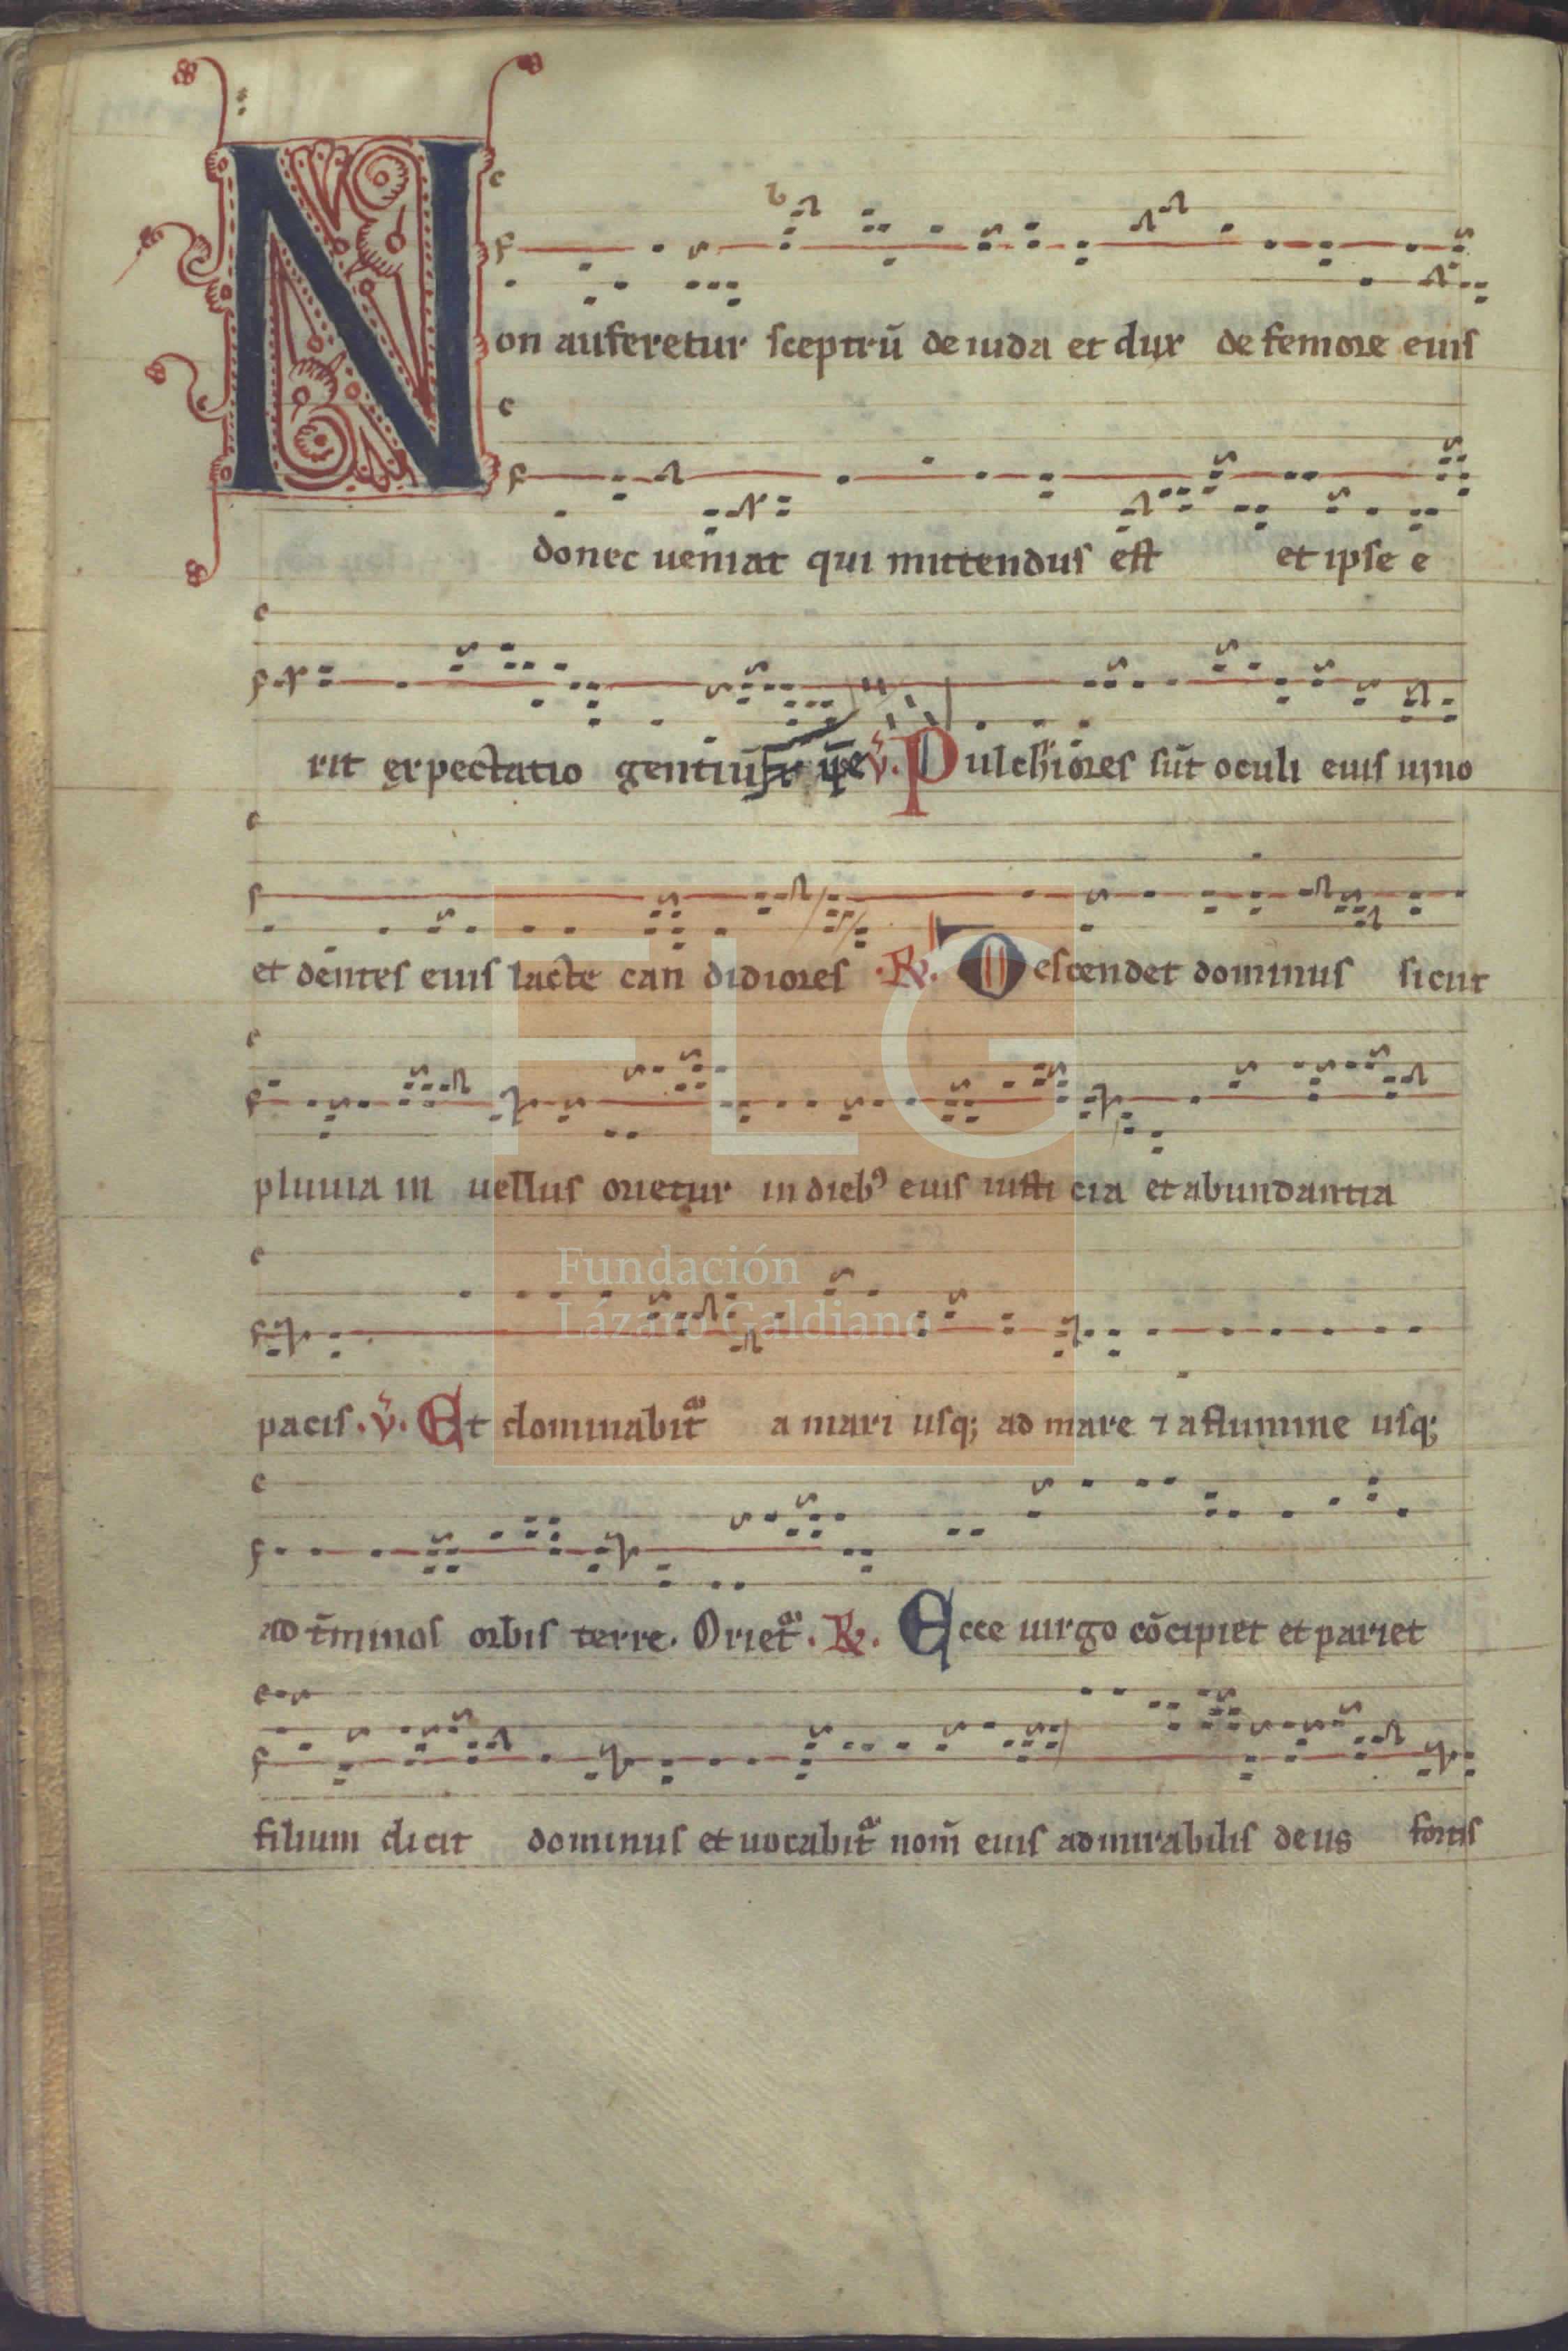 Non auferetur sceptrū de iuda et dux de femore eius
donec ueniat qui mittendus est et ipse e
rit expectatio gentiū v̓. Pulchiores sūt oculi eius uino
et dentes eius lacte can didiores .R̷. Descendet dominus sicut
Fundación
Lázaro Galdiano
FLG
pluuia in uellus orietur in diebꝰ eius iusti cia et abundantia
pacis . v̓. Et dominabit᷒ a mari usq; ad mare ⁊ a flumine usq;
ad t̄minos orbis terre. Oriet᷒ . R̷. Ecce uirgo cōcipiet et pariet
filium dicit dominus et uocabit᷒ nom̄ eius admirabilis deus fortis